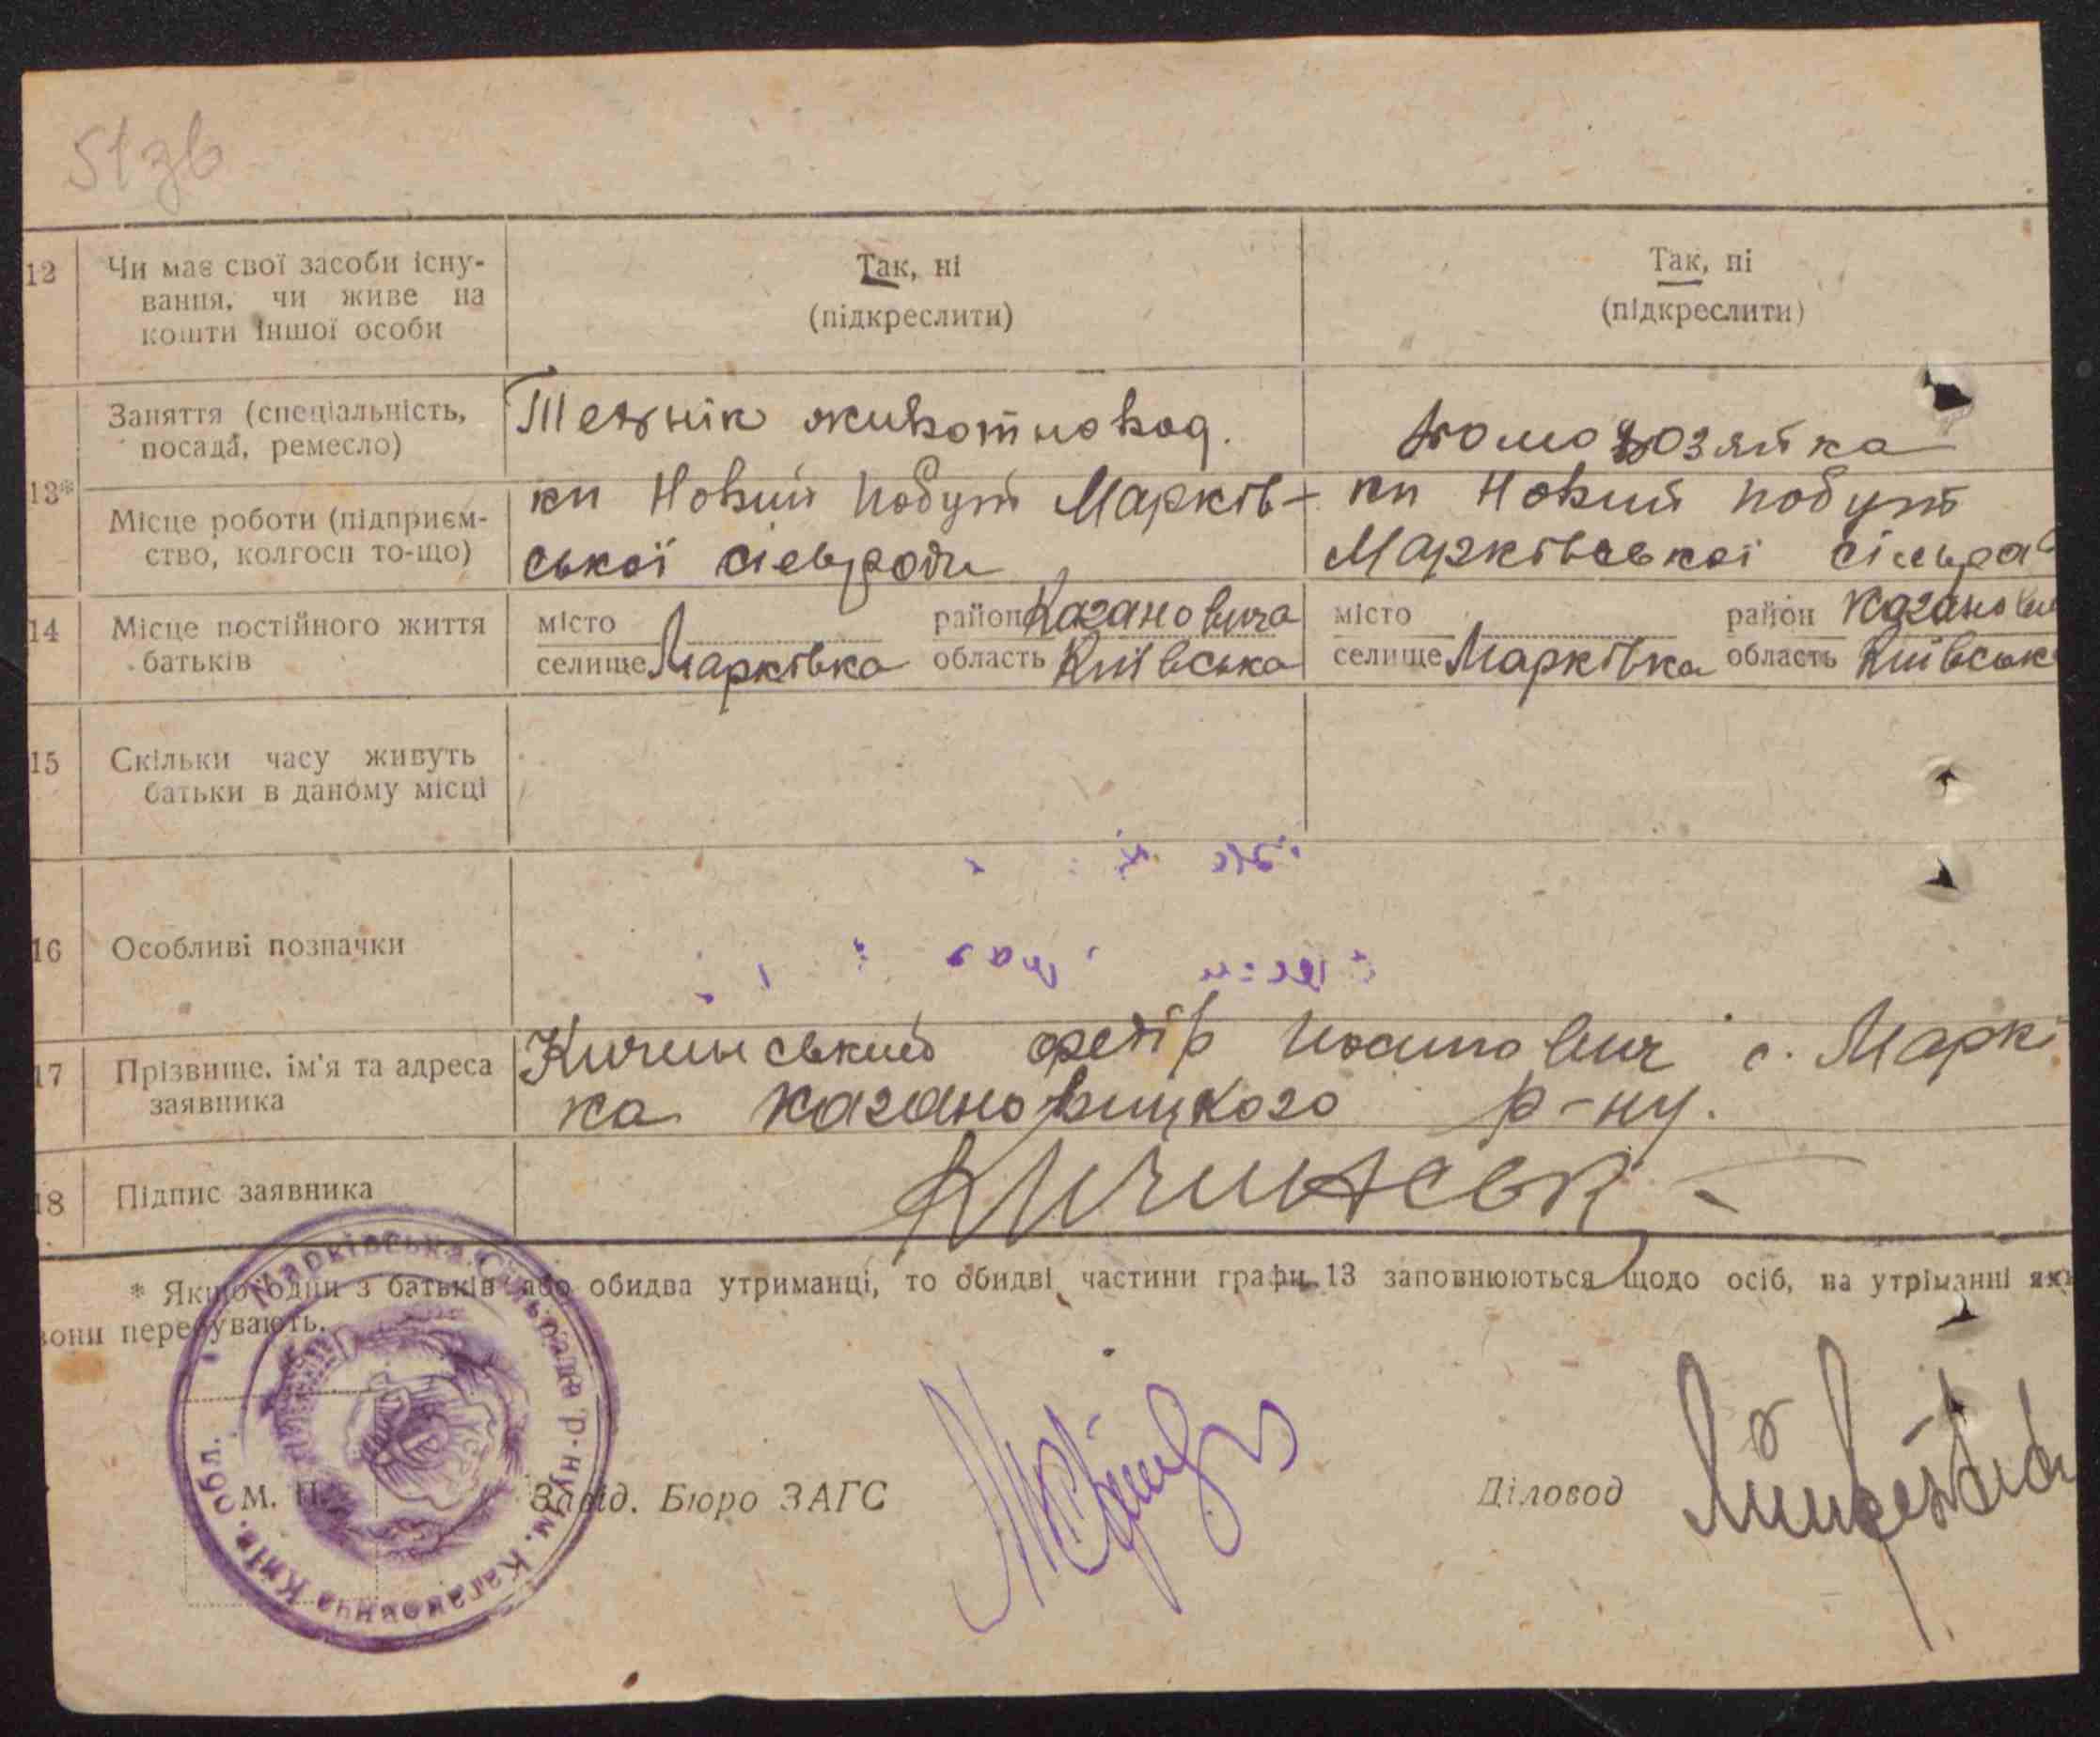 51зв
12 Чи має свої засоби існу-
вання, чи живе на
кошти іншої особи
Так, ні
(підкреслити)
Так, ні
(підкреслити)
13*
Заняття (спеціальність,
посада, ремесло)
Технік животновод.
домохозяйка
Місце роботи (підприєм-
ство, колгосп то-що)
кп Новий побут Марків-
ської сільради
кп Новий побут
Марківської сільра
14 Місце постійного життя
батьків
місто район Кагановича
селище Марківка область Київська
місто район Каганови
селище Марківка область Київськ
15 Скільки часу живуть
батьки в даному місці
16 Особливі позначки
17 Прізвище, ім'я та адреса
заявника
Кичинський федір с. Маркі
ка Кагановицкого р-ну.
18 Підпис заявника
Кичинськ
* Якщо один з батьків або обидва утриманці, то обидві частини графи 13 заповнюються щодо осіб, на утріманні яких
вони перебувають.
Марківська Сільрада р-ну ім. Кагановича Київ. обл.
М. П.
Завід. Бюро ЗАГС
Діловод